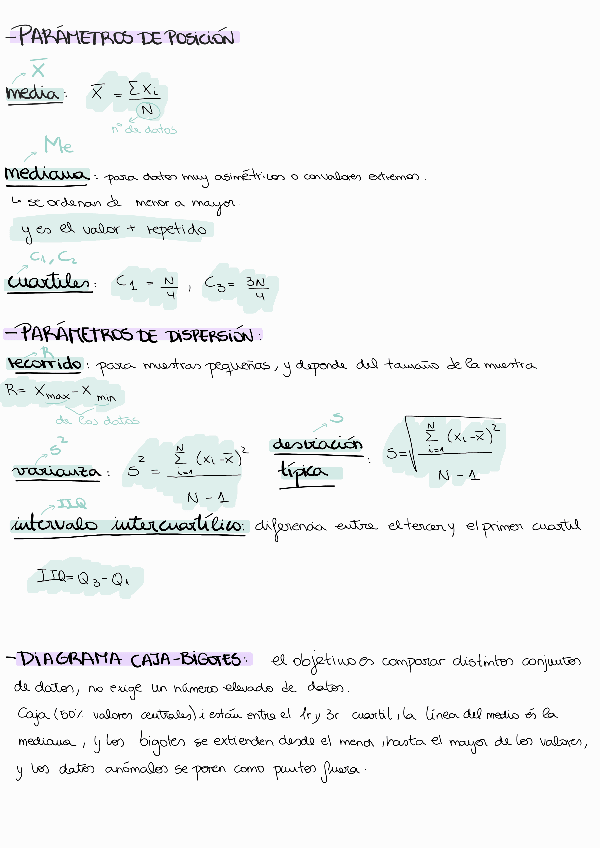 - PARÁMETROS DE POSICIÓN
X̅
media: X̅ = ΣXi / N
nº de datos
Me
mediana: para datos muy asimétricos o con valores extremos.
↳ se ordenan de menor a mayor
y es el valor + repetido
C1, C2
cuartiles: C1 = N/4 , C3 = 3N/4
- PARÁMETROS DE DISPERSIÓN:
R
recorrido: para muestras pequeñas, y depende del tamaño de la muestra
R = Xmax - Xmin
de los datos
S²
varianza: S² = Σ(i=1, N) (xi - x̅)² / N - 1
S
desviación típica: S = √(Σ(i=1, N) (xi - x̅)² / N - 1)
IIQ
intervalo intercuartílico: diferencia entre el tercer y el primer cuartil
IIQ = Q3 - Q1
- DIAGRAMA CAJA-BIGOTES: el objetivo es comparar distintos conjuntos
de datos, no exige un número elevado de datos.
Caja (50% valores centrales) i están entre el 1r y 3r cuartil, la línea del medio es la
mediana, y los bigotes se extienden desde el menor, hasta el mayor de los valores,
y los datos anómalos se ponen como puntos fuera.